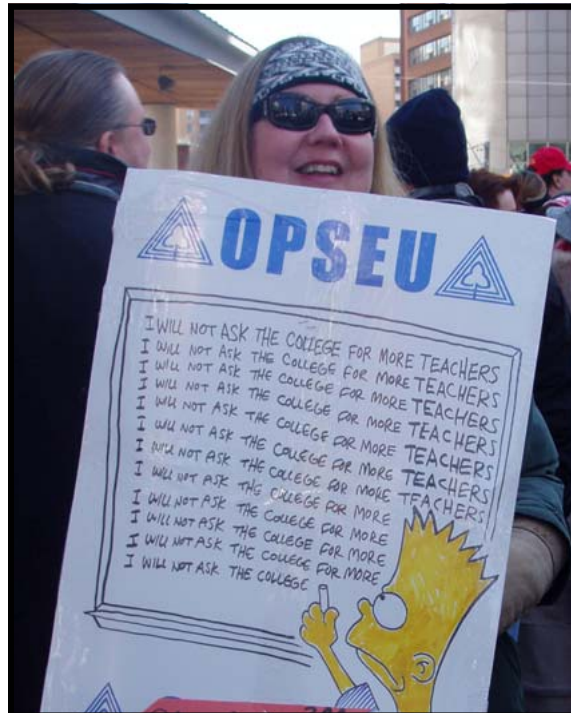 OPSEU
I WILL NOT ASK THE COLLEGE FOR MORE TEACHERS
I WILL NOT ASK THE COLLEGE FOR MORE TEACHERS
I WILL NOT ASK THE COLLEGE FOR MORE TEACHERS
I WILL NOT ASK THE COLLEGE FOR MORE TEACHERS
I WILL NOT ASK THE COLLEGE FOR MORE TEACHERS
I WILL NOT ASK THE COLLEGE FOR MORE TEACHERS
I WILL NOT ASK THE COLLEGE FOR MORE TEACHERS
I WILL NOT ASK THE COLLEGE FOR MORE TEACHERS
I WILL NOT ASK THE COLLEGE FOR MORE
I WILL NOT ASK THE COLLEGE FOR MORE
I WILL NOT ASK THE COLLEGE FOR MORE
I WILL NOT ASK THE COLLEGE